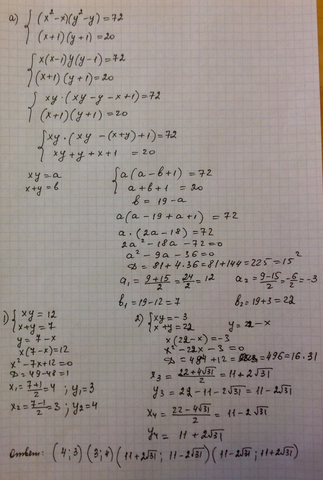 а) { (x² - x)(y² - y) = 72
(x+1)(y+1) = 20
{ x(x-1)y(y-1) = 72
(x+1)(y+1) = 20
{ xy · (xy - y - x + 1) = 72
(x+1)(y+1) = 20
{ xy · (xy - (x+y) + 1) = 72
xy + y + x + 1 = 20
xy = a
x+y = b
{ a(a - b + 1) = 72
a + b + 1 = 20
b = 19 - a
a(a - 19 + a + 1) = 72
a · (2a - 18) = 72
2a² - 18a - 72 = 0
a² - 9a - 36 = 0
D = 81 + 4·36 = 81 + 144 = 225 = 15²
a₁ = (9+15)/2 = 24/2 = 12   a₂ = (9-15)/2 = -6/2 = -3
b₁ = 19 - 12 = 7   b₂ = 19 + 3 = 22
1) { xy = 12
x + y = 7
y = 7 - x
x(7-x) = 12
x² - 7x + 12 = 0
D = 49 - 48 = 1
x₁ = (7+1)/2 = 4 ; y₁ = 3
x₂ = (7-1)/2 = 3 ; y₂ = 4
2) { xy = -3
x + y = 22   y = 22 - x
x(22 - x) = -3
x² - 22x - 3 = 0
D = 484 + 12 = 496 = 16·31
x₃ = (22+4√31)/2 = 11 + 2√31
y₃ = 22 - 11 - 2√31 = 11 - 2√31
x₄ = (22-4√31)/2 = 11 - 2√31
y₄ = 11 + 2√31
Ответ: (4;3) (3;4) (11+2√31 ; 11-2√31) (11-2√31 ; 11+2√31)